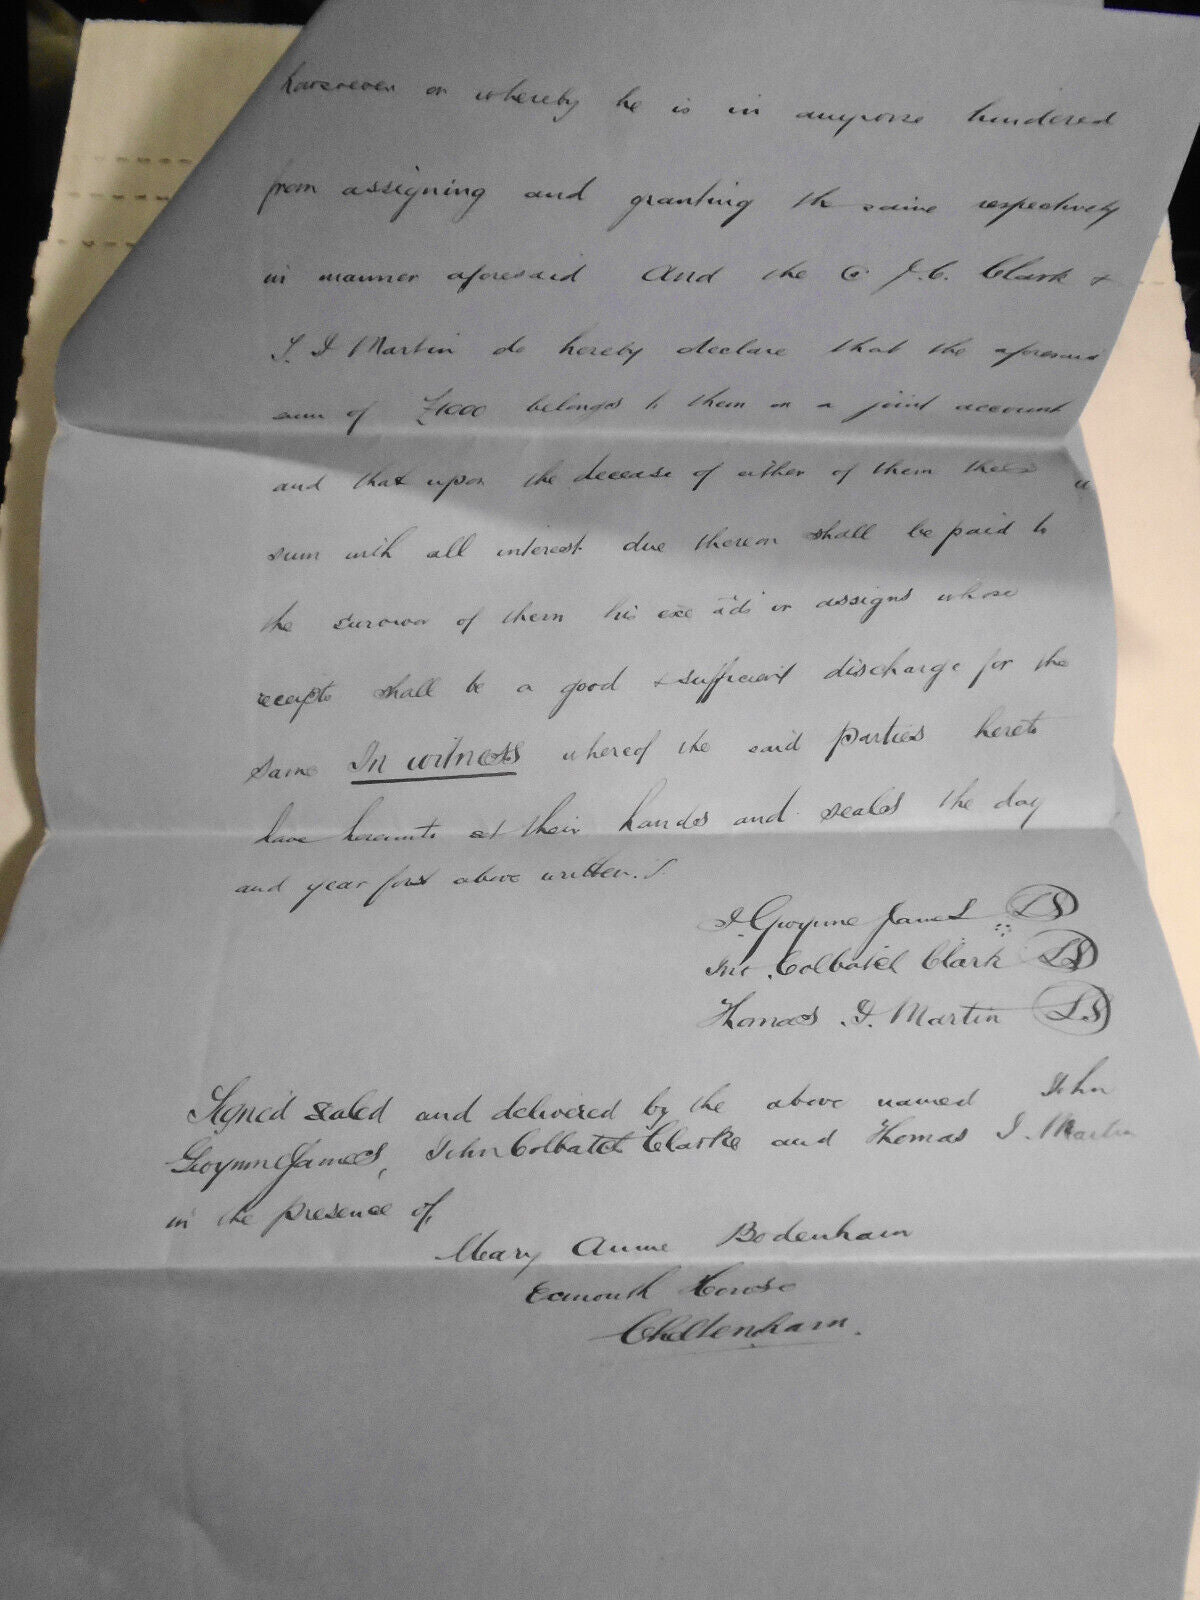 howsoever or whereby he is in anywise hindered
from assigning and granting the same respectively
in manner aforesaid And the J. C. Clark +
T. I Martin do hereby declare that the aforesaid
sum of £1000 belongs to them on a joint account
and that upon the decease of either of them the sd
sum with all interest due thereon shall be paid to
the survivor of them his exe ads or assigns whose
receipts shall be a good + sufficient discharge for the
same In witness whereof the said parties hereto
have hereunto set their hands and seales the day
and year first above written.
J. Gwynne James LS
Jno. Colbatch Clark LS
Thomas I. Martin LS
Signed sealed and delivered by the above named John
Gwynne James, John Colbatch Clarke and Thomas I. Martin
in the presence of,
Mary Anne Bodenham
Exmouth House
Cheltenham.